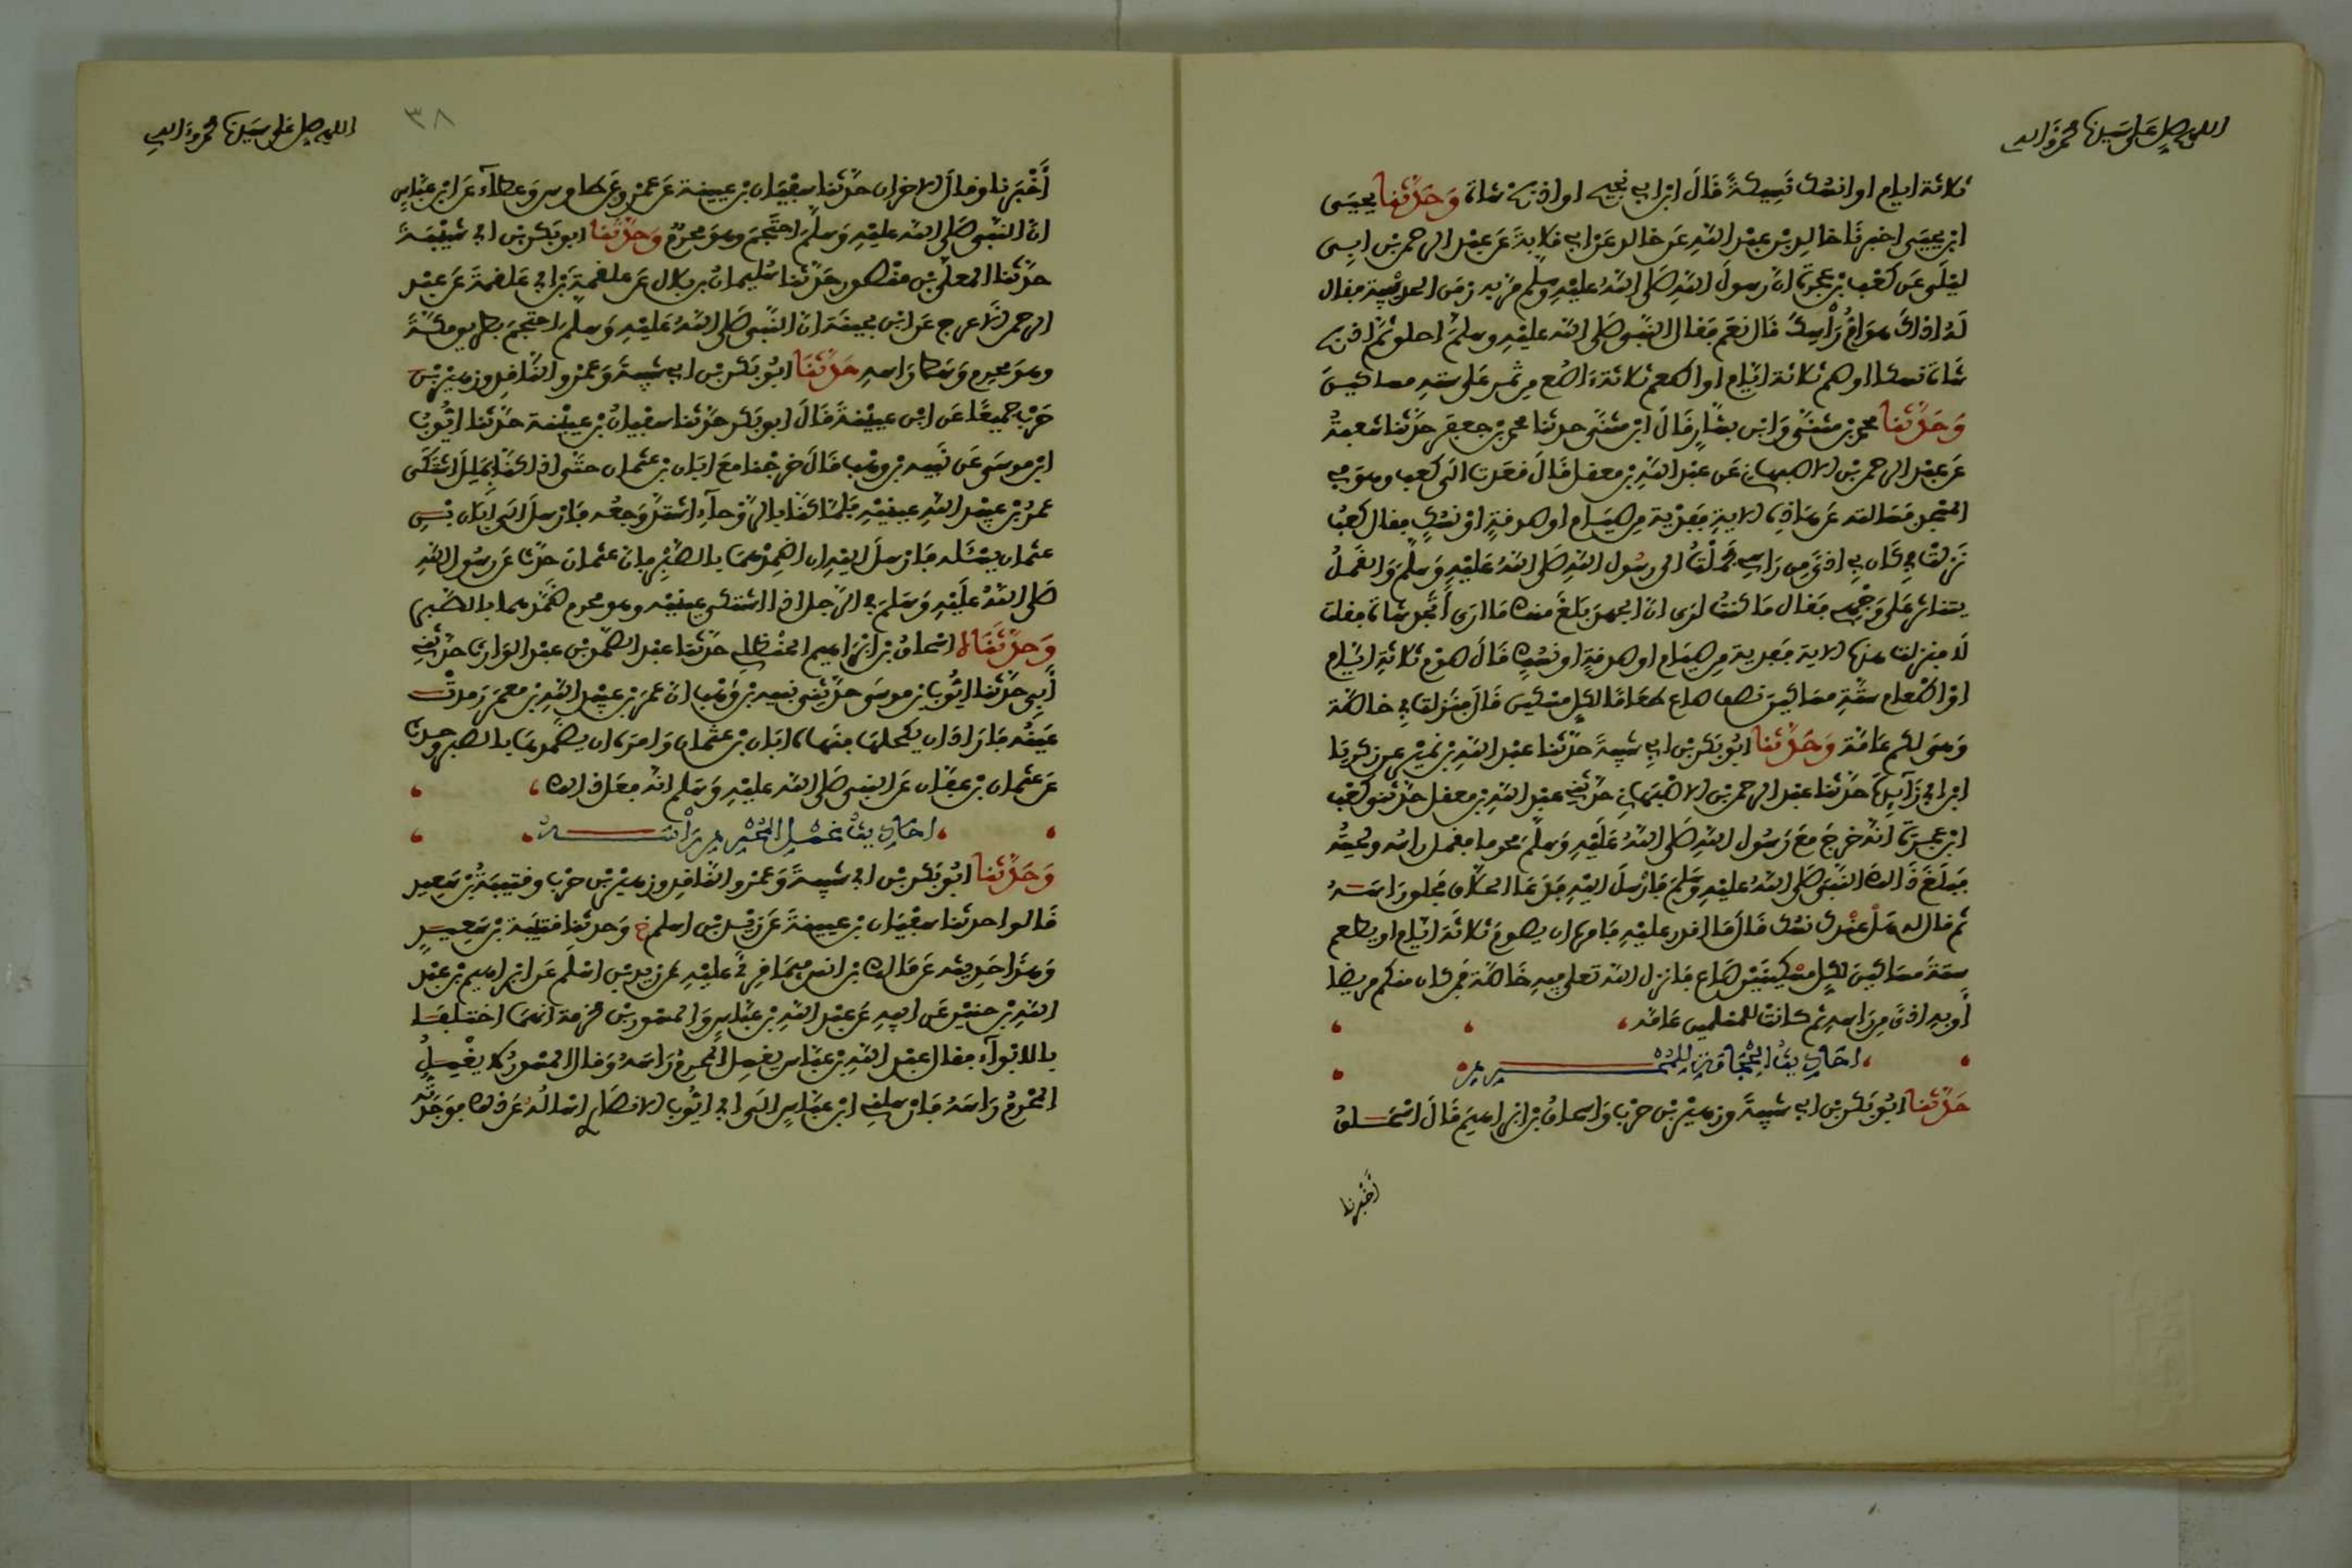 اللهم صل على سيدنا محمد وءاله
ثلاثة ايام او انسك نسيكة قال ابن ابي نجيح او اذبح شاة وحدثنا يحيى
ابن يحيى اخبرنا خالد بن عبد الله عن خالد عن ابي قلابة عن عبد الرحمن بن ابي
ليلى عن كعب بن عجرة ان رسول الله صلى الله عليه وسلم مر به زمن الحديبية فقال
له اذاك هوام رأسك قال نعم فقال النبي صلى الله عليه وسلم احلق ثم اذبح
شاة نسكا او صم ثلاثة ايام او اطعم ثلاثة ءاصع من تمر على سته مساكين
وحدثنا محمد بن مثنى وابن بشار قال ابن مثنى حدثنا محمد بن جعفر حدثنا شعبة
عن عبد الرحمن بن الاصبهاني عن عبد الله بن معقل قال قعدت الى كعب وهو في
المسجد فسالته عن هاذه الاية ففدية من صيام او صدقة او نسك فقال كعب
نزلت في كان بي اذى من راسي فحملت الى رسول الله صلى الله عليه وسلم والقمل
يتناثر على وجهي فقال ما كنت ارى ان الجهد بلغ منك ما ارى أتجد شاة فقلت
لا فنزلت هذه الاية ففدية من صيام او صدقة او نسك قال صوم ثلاثة ايام
او اطعام ستة مساكين نصف صاع طعاما لكل مسكين قال فنزلت في خاصة
وهي لكم عامة وحدثنا ابو بكر بن ابي شيبة حدثنا عبد الله بن نمير عن زكريا
ابن ابي زآيدة حدثنا عبد الرحمن بن الاصبهاني حدثني عبد الله بن معقل حدثني كعب
ابن عجرة انه خرج مع رسول الله صلى الله عليه وسلم محرما فقمل راسه ولحيته
فبلغ ذالك النبي صلى الله عليه وسلم فارسل اليه فدعا الحلاق فحلق راسه
ثم قال له هل عندك نسك قال ما اقدر عليه فامره ان يصوم ثلاثة ايام او يطعم
ستة مساكين لكل مسكينين صاع فانزل الله تعلى فيه خاصة فمن كان منكم مريضا
أو به اذى من راسه ثم كانت للمسلمين عامة
احاديث الحجامة للمحرم
حدثنا ابو بكر بن ابي شيبة وزهير بن حرب واسحاق بن ابراهيم قال اسحاق
أخبرنا
٣٨
اللهم صل على سيدنا محمد وءاله
أخبرنا وقال الاخران حدثنا سفيان بن عيينة عن عمرو عن طاوس وعطآء عن ابن عباس
ان النبي صلى الله عليه وسلم احتجم وهو محرم وحدثنا ابو بكر بن ابي شيبة
حدثنا المعلى بن منصور حدثنا سليمان بن بلال عن علقمة بن ابي علقمة عن عبد
الرحمن الاعرج عن ابن بحينة ان النبي صلى الله عليه وسلم احتجم بطريق مكة
وهو محرم وسط راسه حدثنا ابو بكر بن ابي شيبة وعمرو الناقد وزهير بن
حرب جميعا عن ابن عيينة قال ابو بكر حدثنا سفيان بن عيينة حدثنا ايوب
ابن موسى عن نبيه بن وهب قال خرجنا مع ابان بن عثمان حتى اذا كنا بملل اشتكى
عمر بن عبيد الله عينيه فلما كنا بالروحآء اشتد وجعه فارسل الى ابان بن
عثمان يسئله فارسل اليه ان اضمدهما بالصبر فان عثمان حدث عن رسول الله
صلى الله عليه وسلم في الرجل اذا اشتكى عينيه وهو محرم ضمدهما بالصبر
وحدثناه اسحاق بن ابراهيم الحنظلي حدثنا عبد الصمد بن عبد الوارث حدثني
أبي حدثنا ايوب بن موسى حدثني نبيه بن وهب ان عمر بن عبيد الله بن معمر رمدت
عينه فاراد ان يكحلها فنهاه ابان بن عثمان وامره ان يضمدها بالصبر وحدث
عن عثمان بن عفان عن النبي صلى الله عليه وسلم انه فعل ذالك
احاديث غسل المحرم رأسه
وحدثنا ابو بكر بن ابي شيبة وعمرو الناقد وزهير بن حرب وقتيبة بن سعيد
قالوا حدثنا سفيان بن عيينة عن زيد بن اسلم ح وحدثنا قتيبة بن سعيد
وهذا حديثه عن مالك بن انس فيما قرئ عليه عن زيد بن اسلم عن ابراهيم بن عبد
الله بن حنين عن ابيه عن عبد الله بن عباس والمسور بن مخرمة انهما اختلفا
بالابوآء فقال عبد الله بن عباس يغسل المحرم راسه وقال المسور لا يغسل
المحرم راسه فارسلني ابن عباس الى ابي ايوب الانصاري اساله عن ذلك فوجدته